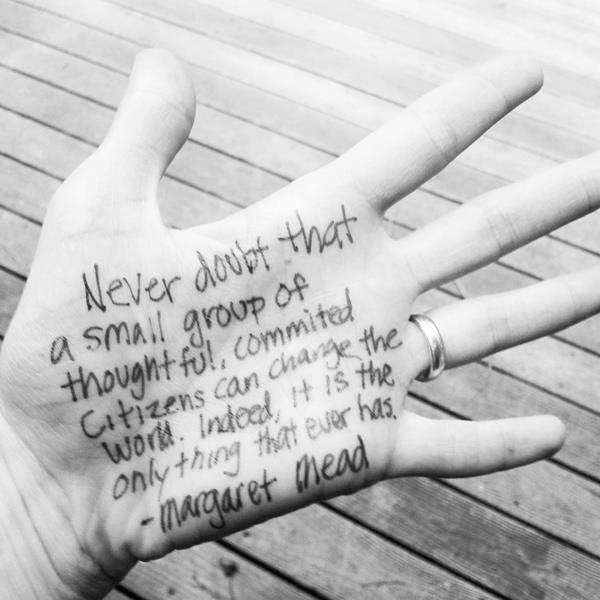 Never doubt that
a small group of
thoughtful, commited
Citizens can change the
world. Indeed, it is the
only thing that ever has.
-Margaret Mead